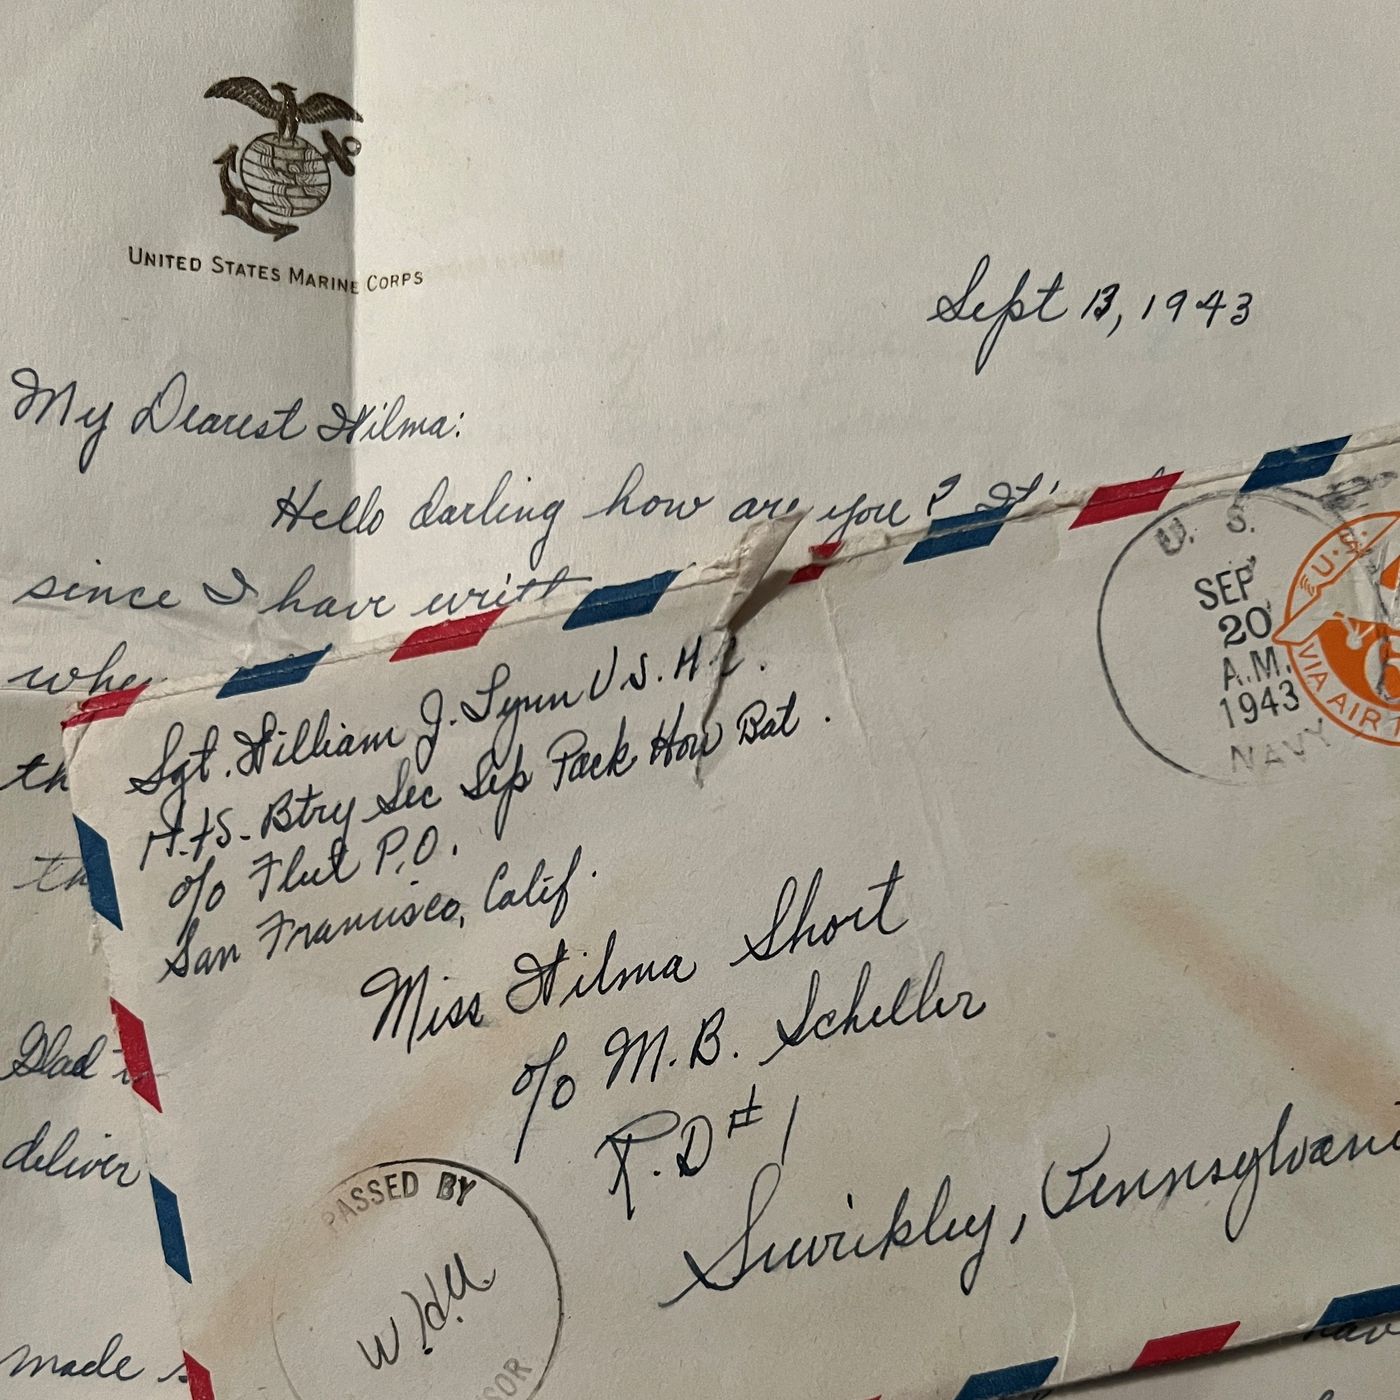 UNITED STATES MARINE CORPS
Sept 13, 1943
My Dearest Wilma:
Hello darling how are you? It'
since I have writt
whe
th
th
Glad
deliver
made s
hav
Sgt. William J. Lynn U.S.M.C.
H.+S. Btry Sec Sep Pack How Bat.
c/o Fleet P.O.
San Francisco, Calif.
Miss Wilma Short
c/o M.B. Scheller
R.D #1
Sewickley, Pennsylvani
U. S.
SEP
20
A.M.
1943
NAVY
U.S.
VIA AIR
PASSED BY
WHM
SOR